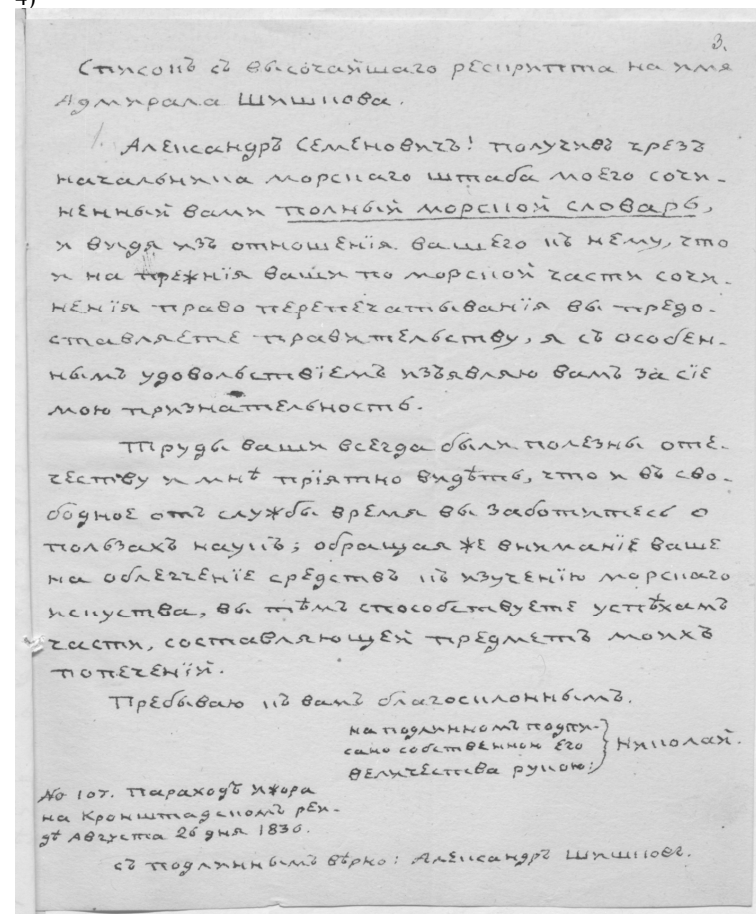 4)
3.
Списокъ съ высочайшаго рескрипта на имя
Адмирала Шишкова.
Александръ Семеновичъ! получивъ чрезъ
начальника морскаго штаба моего сочи-
ненный вами полный морской словарь,
и видя изъ отношенія вашего къ нему, что
и на прежнія ваши по морской части сочи-
ненія право перепечатыванія вы предо-
ставляете правительству, я съ особен-
нымъ удовольствіемъ изъявляю вамъ за сіе
мою признательность.
Труды ваши всегда были полезны оте-
честву и мнѣ пріятно видѣть, что и въ сво-
бодное отъ службы время вы заботитесь о
пользахъ наукъ; обращая же вниманіе ваше
на облегченіе средствъ къ изученію морскаго
искуства, вы тѣмъ способствуете успѣхамъ
части, составляющей предметъ моихъ
попеченій.
Пребываю къ вамъ благосклоннымъ.
на подлинномъ подпи-
сано собственною Его
величества рукою:} Николай.
No 107. Параходъ ижора
на Кронштадскомъ рей-
дѣ Августа 26 дня 1830.
съ подлиннымъ вѣрно: Александръ Шишковъ.